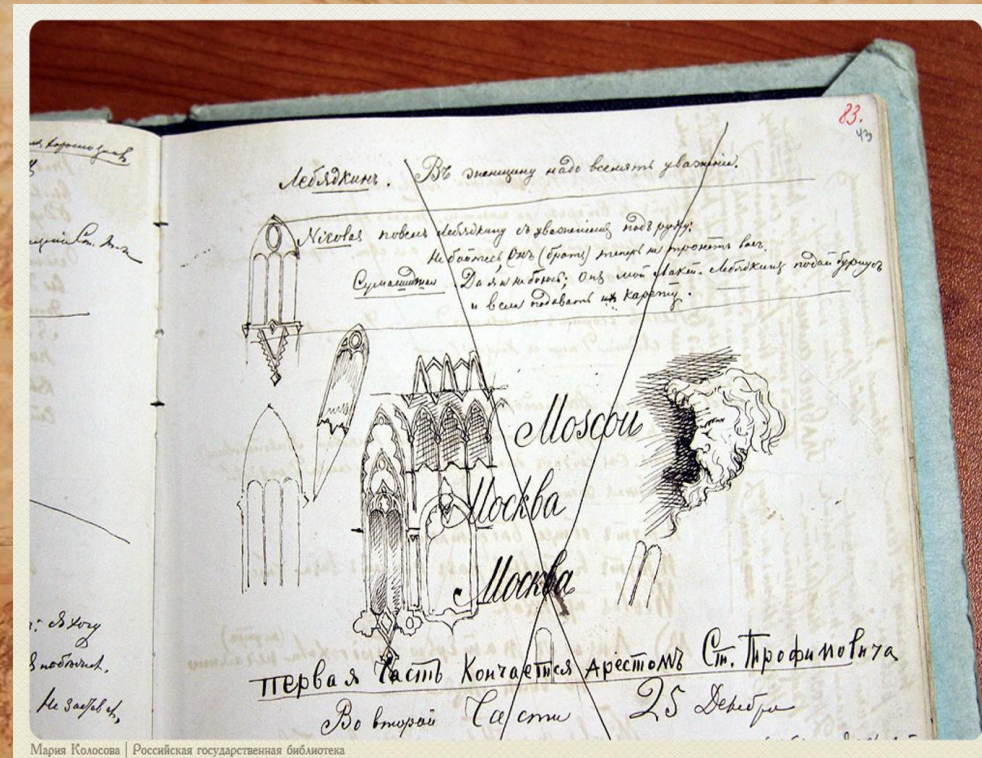 83.
43
Лебядкинъ. Въ женщину надо вселять уваженіе.
Nicolas повелъ Лебядкину съ уваженіемъ подъ руку:
Не бойтесь Онъ (братъ) теперь не тронетъ васъ.
Сумасшедшая. Да я и не боюсь; онъ мой лакей. Лебядкинъ подай бурнусъ
и вели подавать карету.
Moscou
Москва
Москва
Первая Часть Кончается Арестомъ Ст. Трофимовича
Во второй Части 25 Декабря
Я хочу
Мария Колосова | Российская государственная библиотека